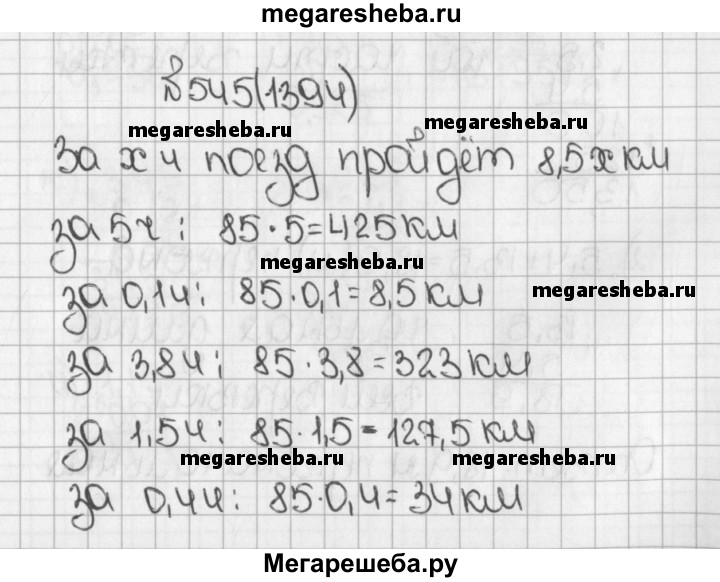 megaresheba.ru
№545(1394)
megaresheba.ru megaresheba.ru
За x ч поезд пройдёт 8,5x км
за 5ч: 85·5=425 км
megaresheba.ru
за 0,1ч: 85·0,1=8,5 км
megaresheba.ru
за 3,8ч: 85·3,8=323 км
за 1,5ч: 85·1,5=127,5 км
megaresheba.ru megaresheba.ru
за 0,4ч: 85·0,4=34 км
Мегарешеба.ру